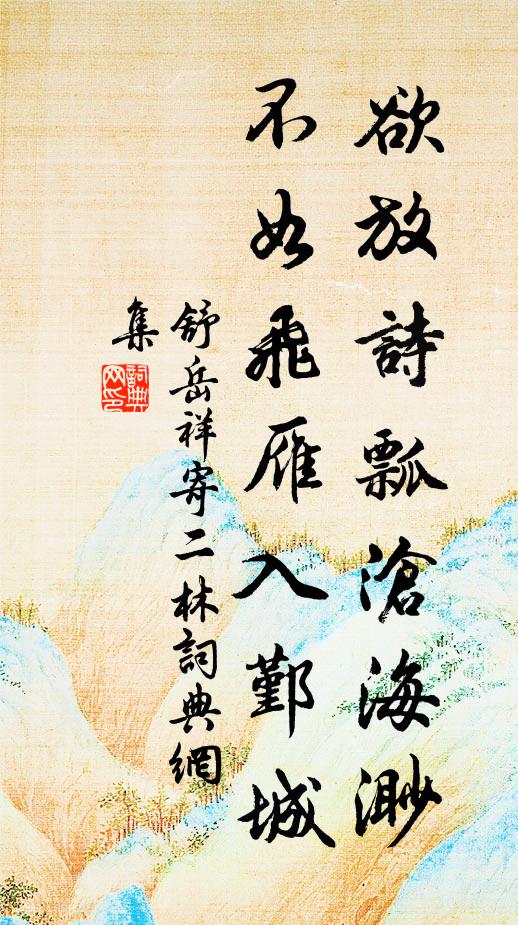 欲放詩瓢滄海渺
不如飛雁入鄞城
舒岳祥寄二林詞典網
集
詞典網印